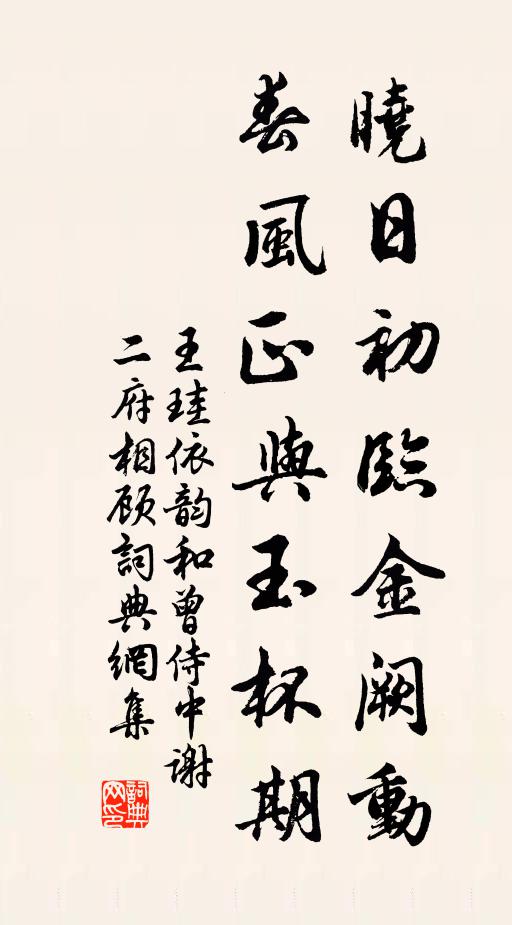 曉日初臨金闕動
春風正與玉杯期
王珪依韵和曾侍中謝
二府相顾詞典網集
詞典
网印